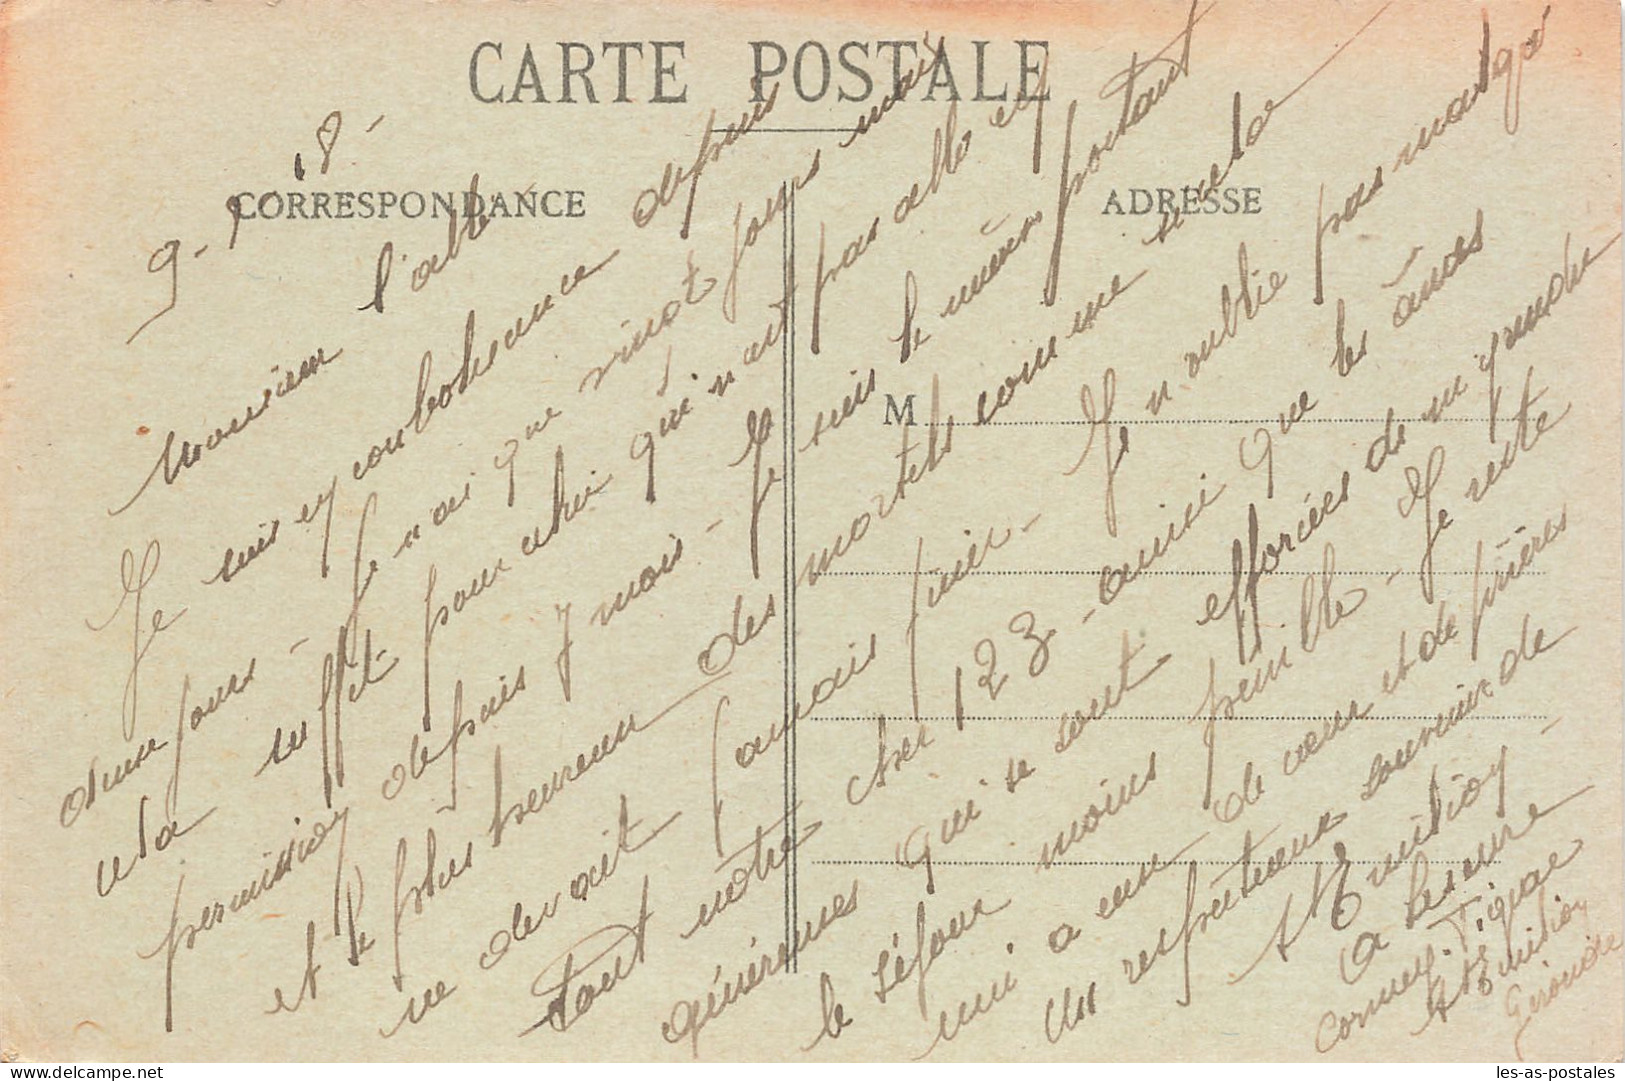 CARTE POSTALE
CORRESPONDANCE
ADRESSE
M
9-9-18-
Monsieur l'abbé-
Je suis en convalescence depuis
onze jours - Je n'ai que vingt jours mais
cela suffit pour celui qui n'est pas allé en
permission depuis 7 mois - Je suis le mieux portant
et le plus heureux des mortels comme si cela
ne devait jamais finir - Je n'oublie pas malgré
tout notre cher 123 - ainsi que les âmes
généreuses qui se sont efforcées de m'y rendre
le séjour moins pénible - Je reste
uni à eux de cœur et de prières
Un respectueux souvenir de
St Emilion -
Lescure
Corney. Figeac
St Emilion
Gironde
les-as-postales